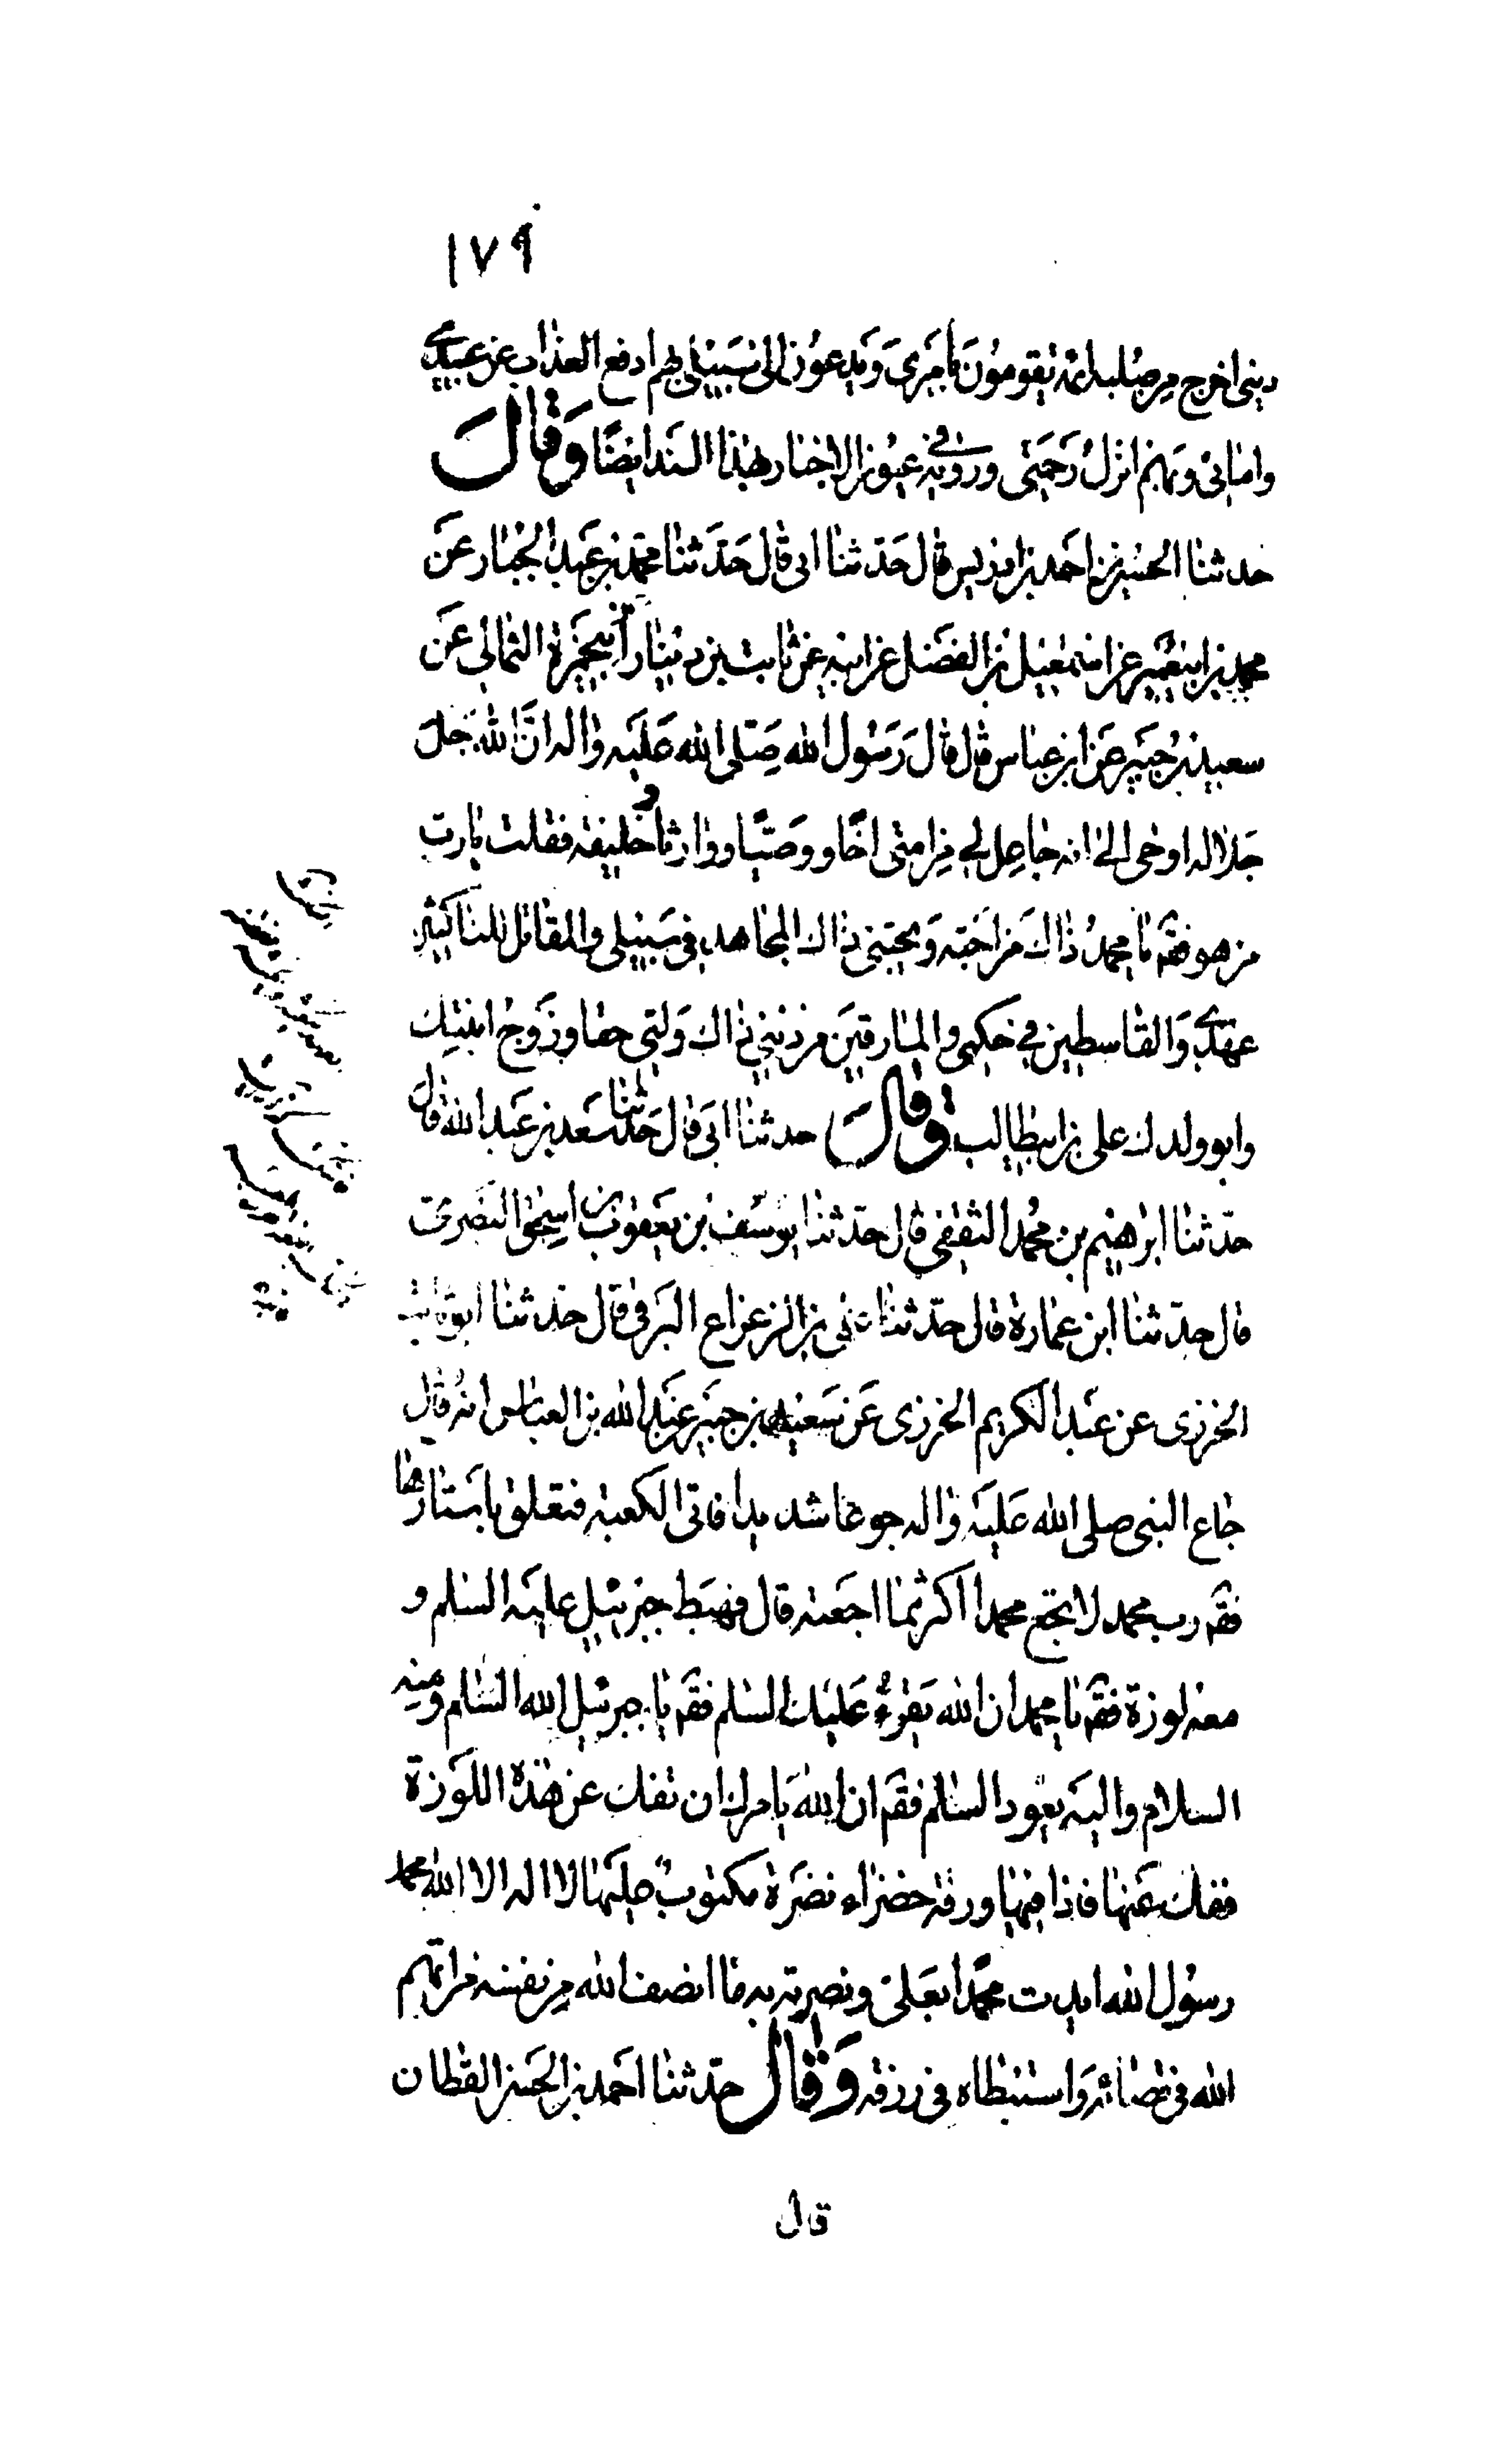 ١٧٩
ديني اخرج من صلبه ائمة يقومون بامري ويدعون الى سبيلي بهم ادفع العذاب عن عبيدي
وامائي وبهم انزل رحمتي ورويته في عيون الاخبار بهذا السند ايضا وقال
حدثنا الحسين بن احمد بن ادريس قال حدثنا ابي قال حدثنا محمد بن عبد الجبار عن
محمد بن ابيعمير عن اسمعيل بن الفضل عن ابيه عن ثابت بن دينار ابيحمزة الثمالي عن
سعيد بن جبير عن ابن عباس قال قال رسول الله صلى الله عليه واله ان الله جل
جلاله اوحى الى انه جاعل لي من امتي اخا ووصيا ووارثا وخليفة فقلت يا رب
من هو فقم يا محمد ذاك من احبه ويحبني ذاك المجاهد في سبيلي والمقاتل للناكثين
عهدي والقاسطين في حكمي والمارقين من ديني ذاك وليي حقا وزوج ابنتك
وابو ولدك علي بن ابيطالب وقال حدثنا ابي قال حدثنا سعد بن عبد الله قال
حدثنا ابرهيم بن محمد الثقفي قال حدثنا يوسف بن يعقوب بن اسحق البصري
قال حدثنا ابن عمارة قال حدثنا بن الزعزاع البرقي قال حدثنا ابو ثابت
الخرزي عن عبد الكريم الخرزي عن سعيد بن جبير عن عبد الله بن العباس انه قال
جاع النبي صلى الله عليه واله جوعا شديدا فاتى الكعبة فتعلق باستارها
فقم رب محمد لا تجع محمدا اكثر مما اجعته قال فهبط جبرئيل عليه السلم و
معه لوزة فقم يا محمد ان الله يقرء عليك السلم فقم يا جبرئيل الله السلام ومنه
السلام واليه يعود السلم فقم ان الله يامرك ان تفك عن هذه اللوزة
ففك عنها فاذا فيها ورقة خضراء نضرة مكتوب عليها لا اله الا الله محمد
رسول الله ايدت محمدا بعلي ونصرته به ما انصف الله من نفسه من اتهم
الله في قضائه واستبطاه في رزقه وقال حدثنا احمد بن الحسن القطان
قال